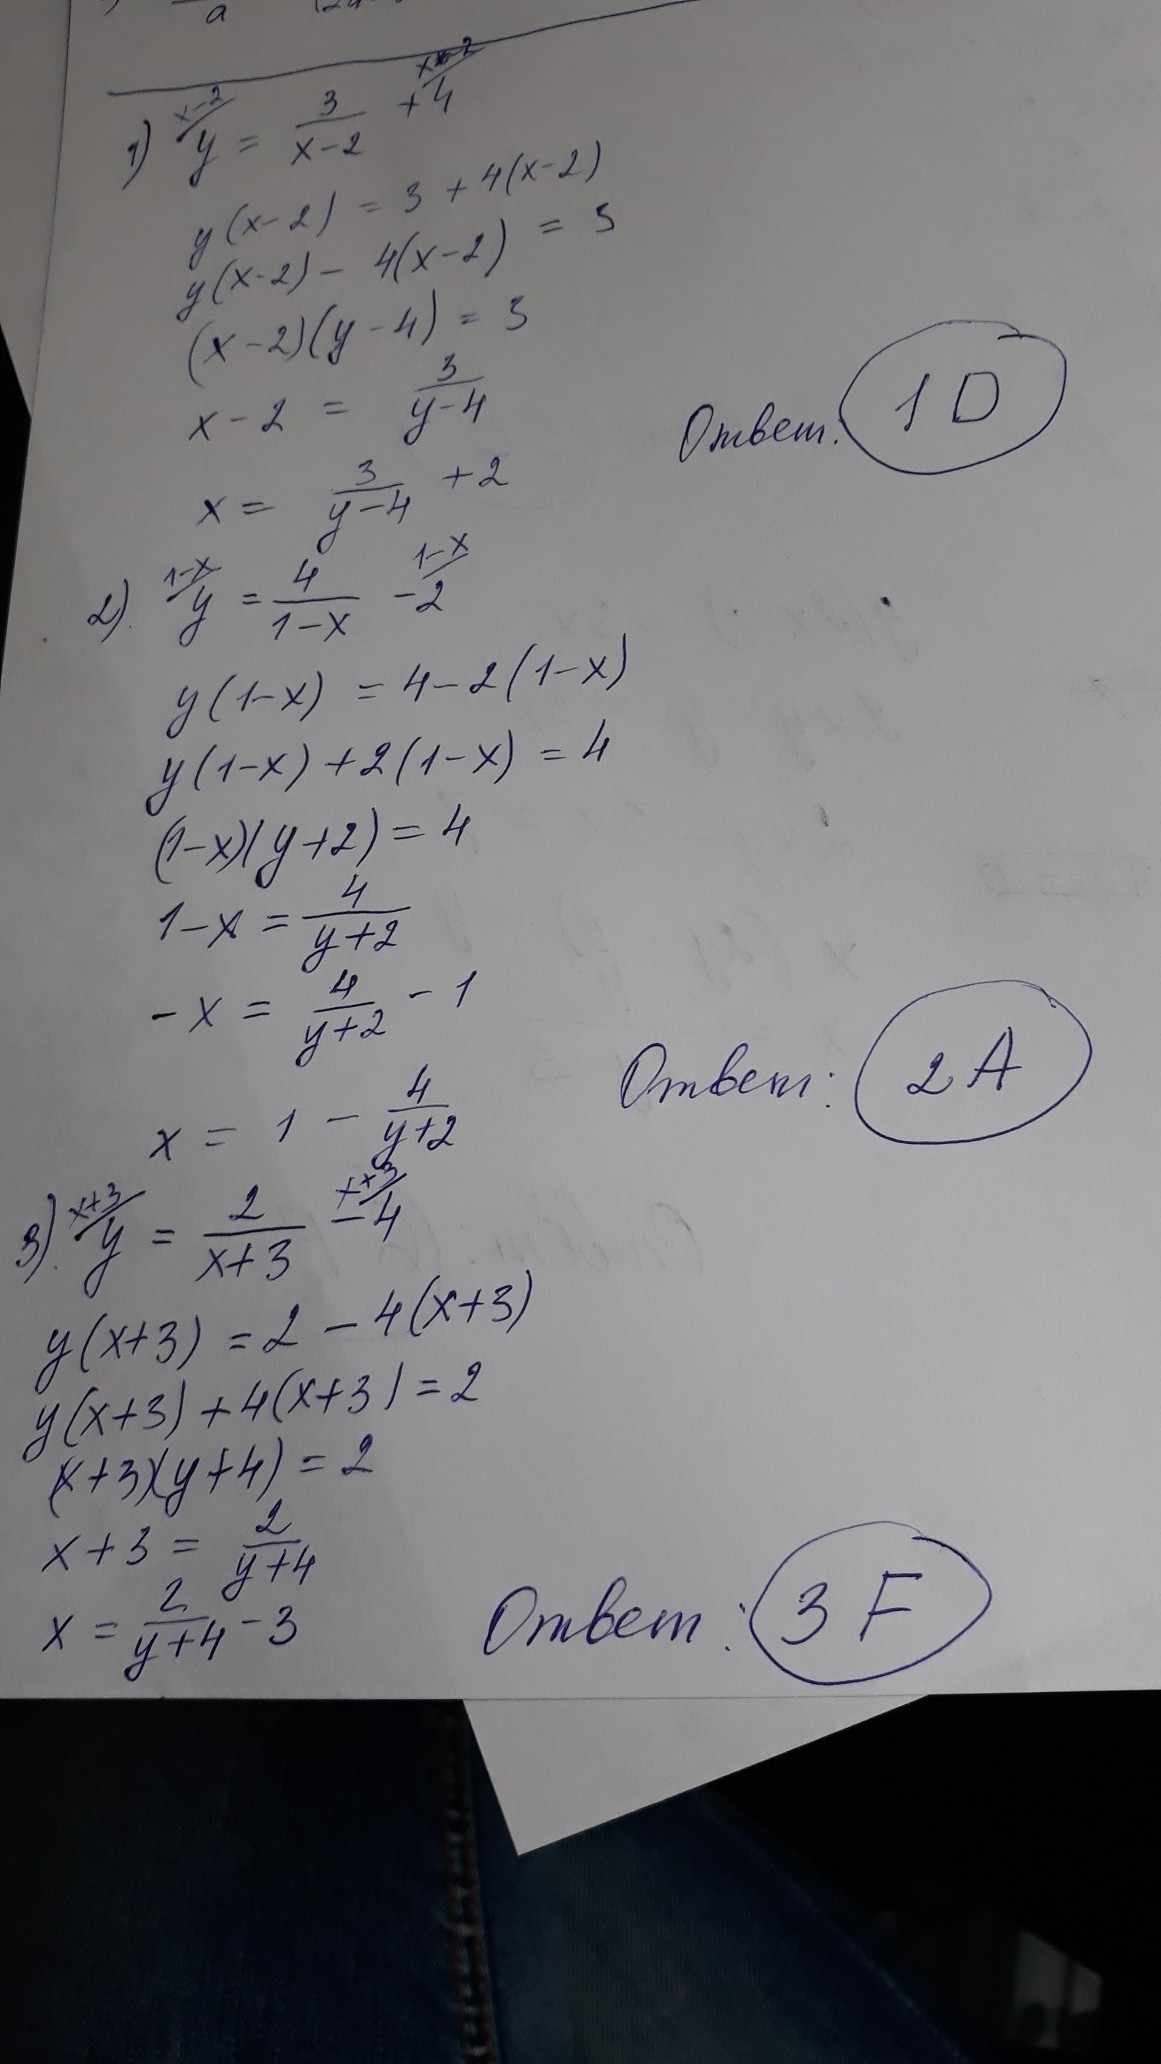 a
1) x-2/ y = 3/(x-2) + 4 x-2/
y(x-2) = 3 + 4(x-2)
y(x-2) - 4(x-2) = 3
(x-2)(y-4) = 3
x-2 = 3/(y-4)
Ответ: 1D
x = 3/(y-4) + 2
2). 1-x/ y = 4/(1-x) - 2 1-x/
y(1-x) = 4-2(1-x)
y(1-x)+2(1-x) = 4
(1-x)(y+2) = 4
1-x = 4/(y+2)
-x = 4/(y+2) - 1
Ответ: 2A
x = 1 - 4/(y+2)
3). x+3/ y = 2/(x+3) - 4 x+3/
y(x+3) = 2 - 4(x+3)
y(x+3)+4(x+3) = 2
(x+3)(y+4) = 2
x+3 = 2/(y+4)
x = 2/(y+4) - 3
Ответ: 3F